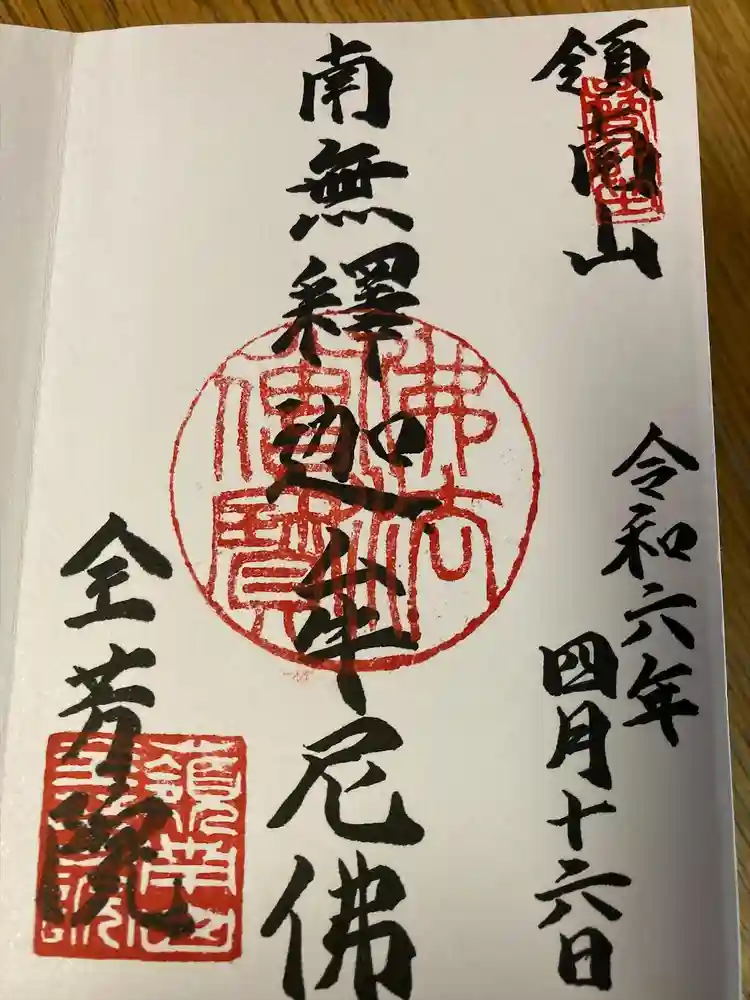 領南山
令和六年
四月十六日
南無釋迦牟尼佛
佛法
僧寶
全芳院
嶺南山
全芳院